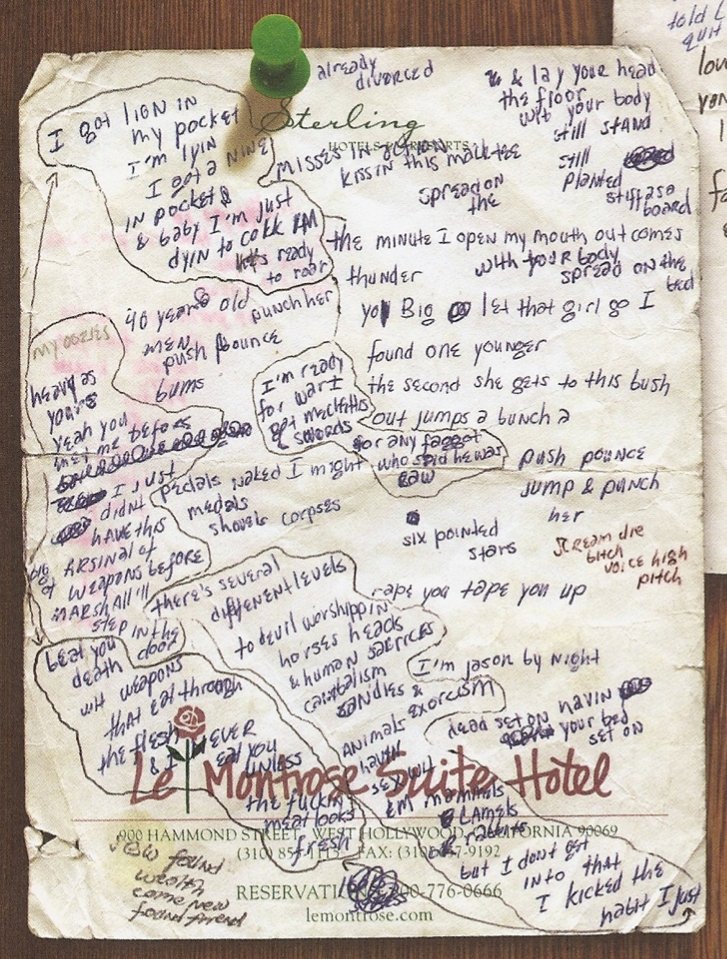 told
quit
already
divorced
& lay your head
the floor
wit your body
still stand
still
planted
stiff as a
board
Sterling
HOTELS & RESORTS
I got lion in
my pocket
I'm lyin
I got a nine
in pockets
& baby I'm just
dyin to cokk em
he's ready
to roar
misses in action
kissin this male tre
spread on
the
the minute I open my mouth out comes
thunder
with your body
spread on the
bed
yo Big let that girl go I
found one younger
the second she gets to this bush
out jumps a bunch a
40 years old
men
push pounce
bums
punch her
I'm ready
for war I
got mechettis
& swords
for any faggot
who said he was
raw
push pounce
jump & punch
her
scream die
bitch
voice high
pitch
my ones
heavy as
yours
yeah you
met me before
I just
didnt
have this
big
of arsinal of
weapons before
marshall'll
step in the
door
pedals naked I might
medals
shovels corpses
six pointed
stars
there's several
different levels
to devil worshippin
horses heads
& human sacrifices
canibalism
candles &
exorcism
rape you tape you up
I'm jason by night
dead set on havin
your bed
set on
beat you
death
wit weapons
that eat through
the flesh
& I never
eat you
unless
the fuckin
meat looks
fresh
animals
havin
sex wit
em mammals
camels
& rabbits
but I dont get
into that
I kicked the
habit I just
Le Montrose Suite Hotel
900 HAMMOND STREET, WEST HOLLYWOOD, CALIFORNIA 90069
(310) 855-1115 FAX: (310) 657-9192
RESERVATIONS: 800-776-0666
lemontrose.com
found
wealth
come new
found friend